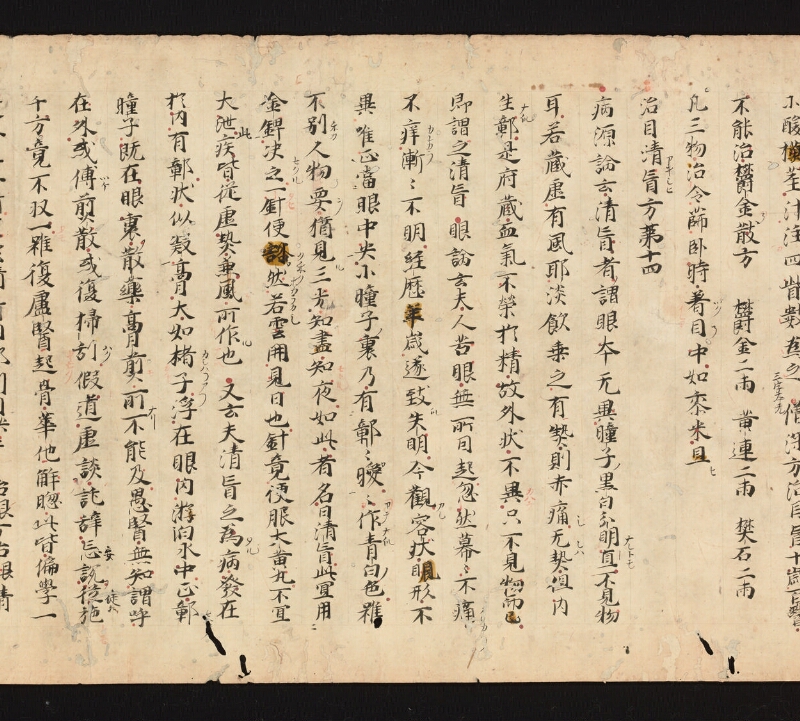 不能治欝金散方 欝金二兩 黄連二兩 樊石二兩
凡三物治令篩卧時著目中如黍米且
治目清盲方第十四
病源論云清盲者謂眼夲无異瞳子黒白分明直不見物
耳若蔵虚有風耶淡飲乗之有𤍠則赤痛无𤍠但内
生鄣是府蔵血氣不榮扵精故外状不異只不見物而已
即謂之清盲 眼論云夫人苦眼無所因起忽然幕〻不痛
不痒漸〻不明経歴年歳遂致失明令觀容状眼形不
異唯正當眼中央小瞳子裏乃有鄣〻曖〻作青白色雖
不別人物要猶見三光知晝知夜如此者名曰清盲此宜用
金錍决之一針便豁然若雲開見日也針竟便服大黄丸不宜
大泄此疾皆従虚𤍠兼風所作也 又云夫清盲之為病發在
扵内有鄣状似凝膏大如楮子浮在眼内游泊水中正鄣
瞳子既在眼裏散藥膏煎所不能及愚醫無知謂呼
在外或傅煎散或復掃割假道虚談託辞妄説徒施
千方竟不収一雖復盧醫起骨華他解聰此皆偏學一